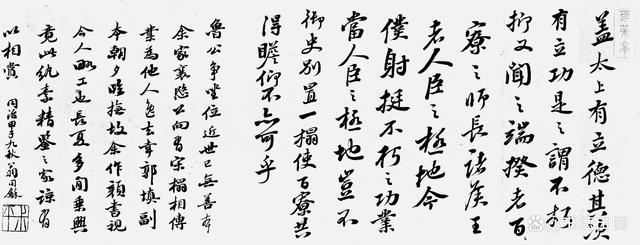 蓋太上有立德其次
有立功是之謂不朽
抑又聞之端揆者百
寮之師長諸侯王
者人臣之極地今
僕射挺不朽之功業
當人臣之極地豈不
御史別置一榻使百寮共
得瞻仰不亦可乎
魯公爭坐位近世已無善本
余家藏公向宋榻相傳
業為他人逸去幸郭填副
本朝夕臨撫故余作顏書視
今人略工也長夏多閒乘興
竟此紈素精鑒之家諒有
以相賞 同治甲子九秋翁同龢